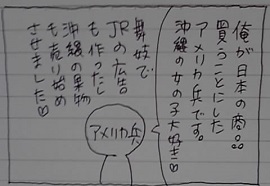 俺が日本の商品
買うことにした
アメリカ兵です。
沖縄の女の子大好き♡
舞妓で
JRの広告
も作ったし
沖縄の果物
も売り始め
させました♡
アメリカ兵